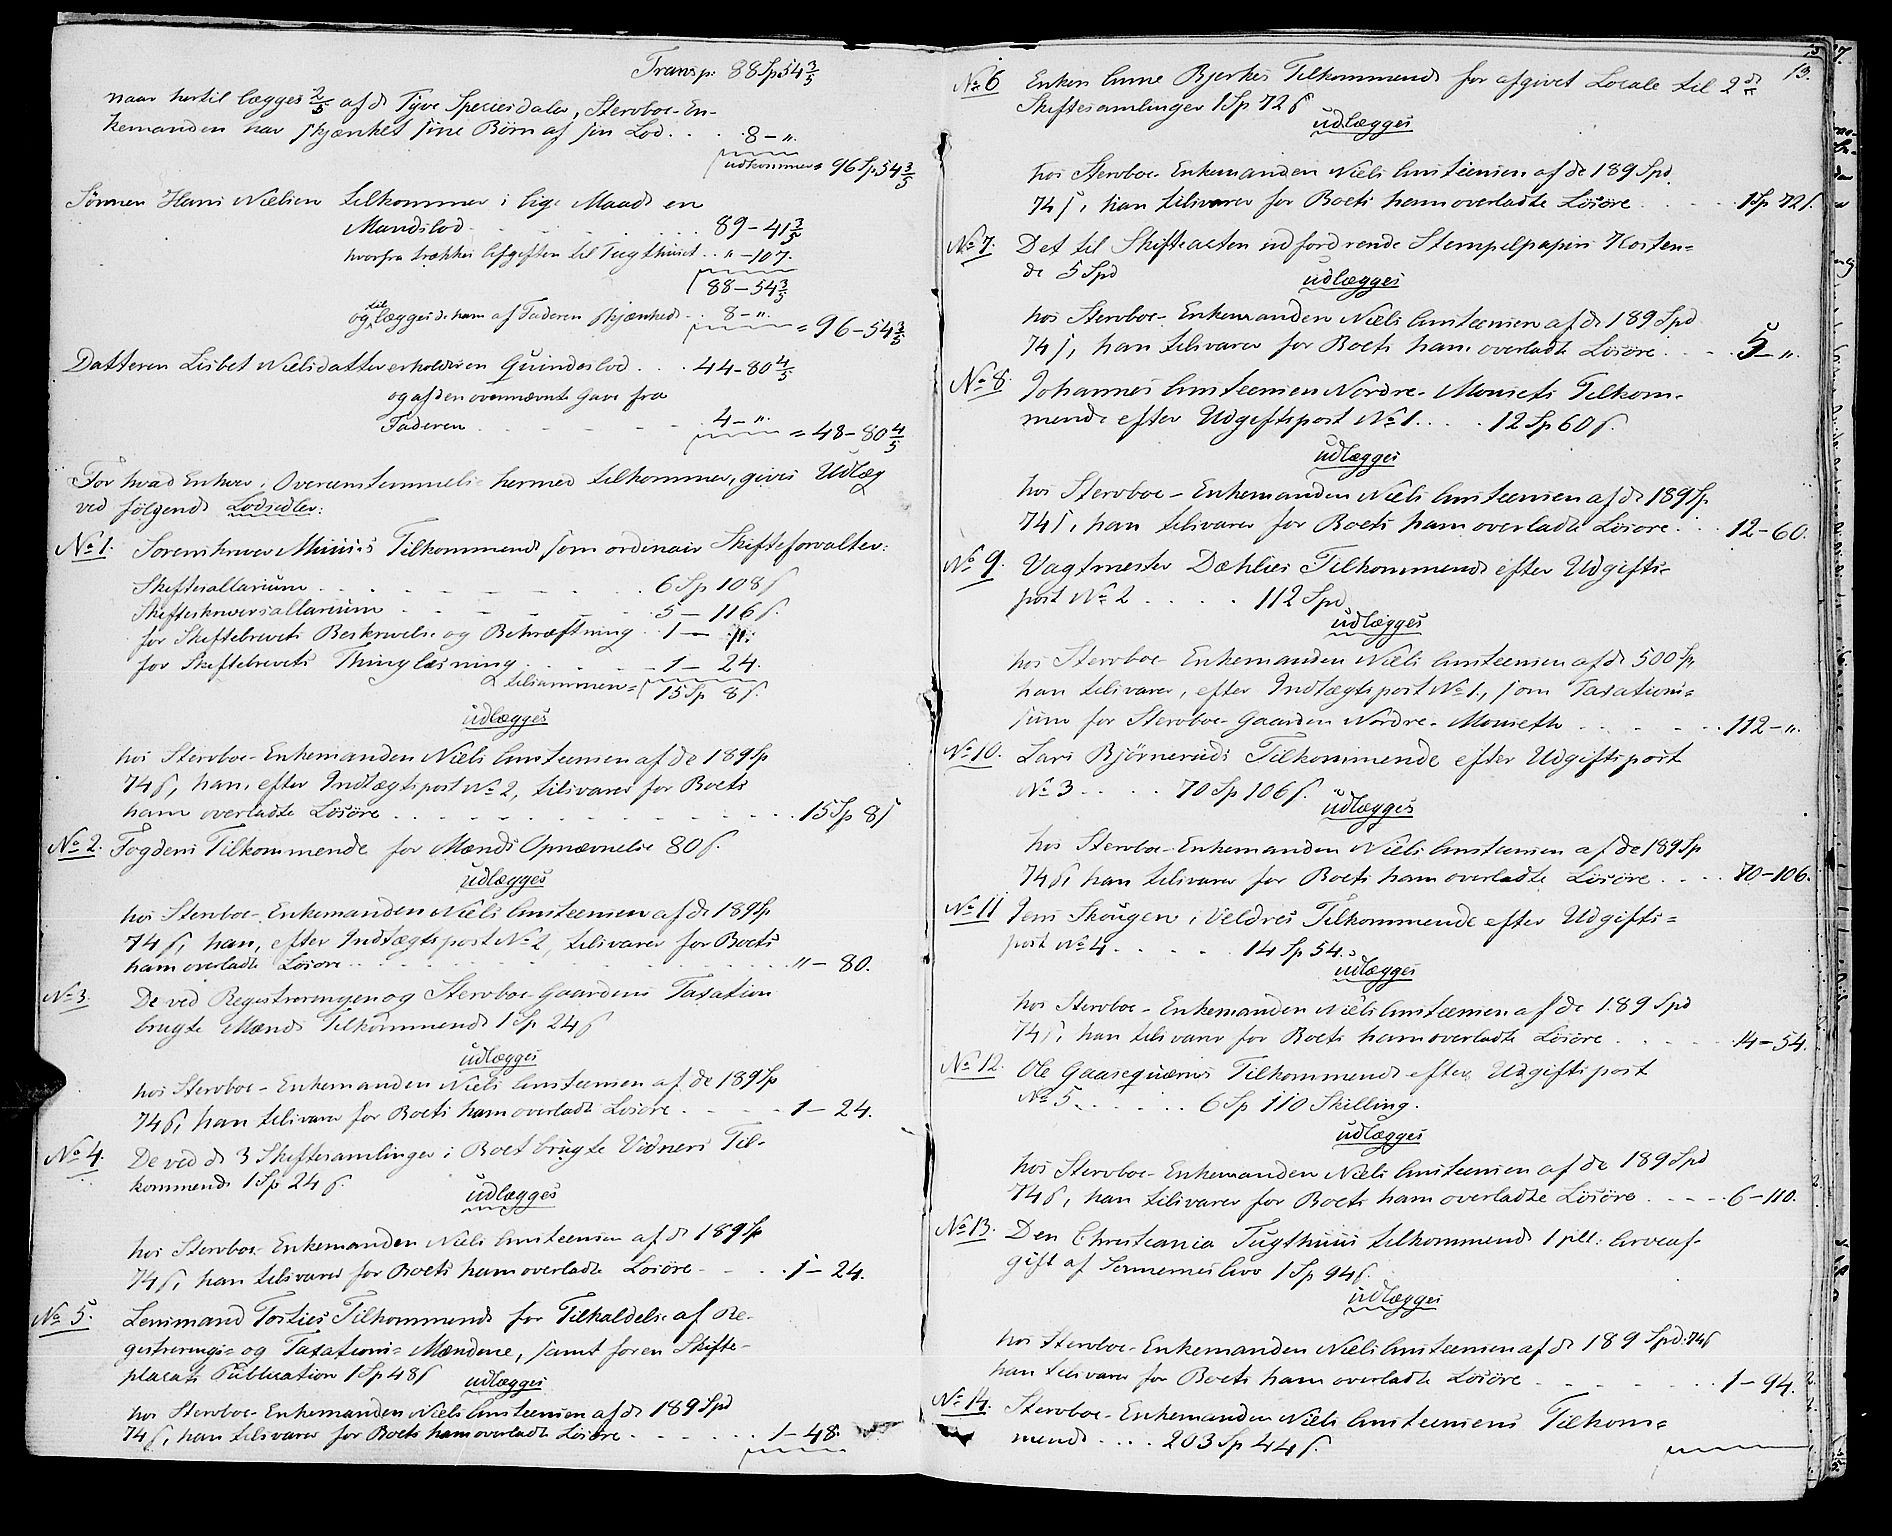 Transp: 88 Sp 54 3/5
naar hertil lægges 2/5 af de Tyve Speciesdaler, Stervboe-En-
kemanden har skjænket sine Børn af sin Lod . . . 8 - "
udkommer = 96 Sp 54 3/5
Sønnen Hans Nielsen tilkommer i lige Maade en
Mandslod . . . 89 - 41 3/5
hvorfra trækkes Afgiften til Tugthuset . . " - 107.
88 - 54 3/5
og til lægges de ham af Faderen skjænkede . . 8 - " = 96 - 54 3/5
Datteren Lisbet Nielsdatter erholder en Quindeslod . . . 44 - 80 4/5
og af den ovennævnte Gave fra
Faderen . . . 4 - " = 48 - 80 4/5
For hvad Enhver i Overeenstemmelse hermed tilkommer, gives Udlæg
ved følgende Lodsedler:
No 1. Sorenskriver Tilkommende som ordinair Skifteforvalter:
Skiftesallarium . . . 6 Sp 108 s
Skifteskriversallarium . . . 5 - 116 s.
for Skiftebrevets Beskrivelse og Bekræftning . . 1 - "
for Skiftebrevets Thinglæsning . . . 1 - 24.
tilsammen = 15 Sp 8 s.
udlægges
hos Stervboe-Enkemanden Niels Amsteensen af de 189 Sp
74 s, han, efter Indtægtspost No 2, tilsvarer for Boets
ham overladte Løsøre . . . 15 Sp 8 s
No 2. Fogdens Tilkommende for Mænds Opnævnelse 80 s.
udlægges
hos Stervboe-Enkemanden Niels Amsteensen af de 189 Sp
74 s, han, efter Indtægtspost No 2, tilsvarer for Boets
ham overladte Løsøre . . . " - 80.
No 3. De ved Registreringen og Stervboe-Gaardens Taxation
brugte Mænds Tilkommende 1 Sp 24 s
udlægges
hos Stervboe-Enkemanden Niels Amsteensen af de 189 Sp
74 s, han tilsvarer for Boets ham overladte Løsøre . . . 1 - 24.
No 4. De ved de 3 Skiftesamlinger i Boet brugte Vidners Til-
kommende 1 Sp 24 s.
udlægges
hos Stervboe-Enkemanden Niels Amsteensen af de 189 Sp
74 s, han tilsvarer for Boets ham overladte Løsøre . . . 1 - 24.
No 5. Lensmand Tilkommende for Tilholdelse af Re-
gistrerings- og Taxations-Mændene, samt for en Skifte-
placats Publication 1 Sp 48 s
udlægges
hos Stervboe-Enkemanden Niels Amsteensen af de 189 Spd
74 s, han tilsvarer for Boets ham overladte Løsøre . . . 1 - 48.
13.
No 6 Enken Anne Bjerkes Tilkommende for afgivet Locale til 2de
Skiftesamlinger 1 Sp 72 s
udlægges
hos Stervboe-Enkemanden Niels Amsteensen af de 189 Spd
74 s, han tilsvarer for Boets ham overladte Løsøre . . . 1 Sp 72 s.
No 7. Det til Skifteacten udfordrende Stempelpapiir Kosten-
de 5 Spd
udlægges
hos Stervboe-Enkemanden Niels Amsteensen af de 189 Spd
74 s, han tilsvarer for Boets ham overladte Løsøre . . . 5 - ".
No 8. Johannes Amsteensen Nordre-Monsets Tilkom-
mende efter Udgiftspost No 1 . . . 12 Sp 60 s.
udlægges
hos Stervboe-Enkemanden Niels Amsteensen af de 189 Sp
74 s, han tilsvarer for Boets ham overladte Løsøre . . 12 - 60.
No 9. Vagtmester Dæhlies Tilkommende efter Udgifts-
post No 2 . . . . 112 Spd
udlægges
hos Stervboe-Enkemanden Niels Amsteensen af de 500 Sp,
han tilsvarer, efter Indtægtspost No 1., som Taxations-
sum for Stervboe-Gaarden Nordre-Monseth . . . 112 - ".
No 10. Lars Bjørneruds Tilkommende efter Udgiftspost
No 3 . . . . 70 Sp 106 s.
udlægges
hos Stervboe-Enkemanden Niels Amsteensen af de 189 Sp
74 s, han tilsvarer for Boets ham overladte Løsøre . . . 70 - 106.
No 11 Jens Skougen i Veldres Tilkommende efter Udgifts-
post No 4 . . . . 14 Sp 54.
udlægges
hos Stervboe-Enkemanden Niels Amsteensen af de 189 Spd
74 s, han tilsvarer for Boets ham overladte Løsøre . . . 14 - 54.
No 12. Ole Gaasequærns Tilkommende efter Udgiftspost
No 5 . . . . 6 Sp 110 Skilling.
udlægges
hos Stervboe-Enkemanden Niels Amsteensen af de 189 Spd
74 s, han tilsvarer for Boets ham overladte Løsøre . . . 6 - 110.
No 13. Den Christiania Tugthuus tilkommende 1 pCt: Arveaf-
gift af Sønnernes Arv 1 Sp 94 s.
udlægges
hos Stervboe-Enkemanden Niels Amsteensen af de 189 Spd: 74 s
han tilsvarer for Boets ham overladte Løsøre . . . 1 - 94.
No 14. Stervboe-Enkemanden Niels Amsteensens Tilkom-
mende . . . 203 Sp 44 s.